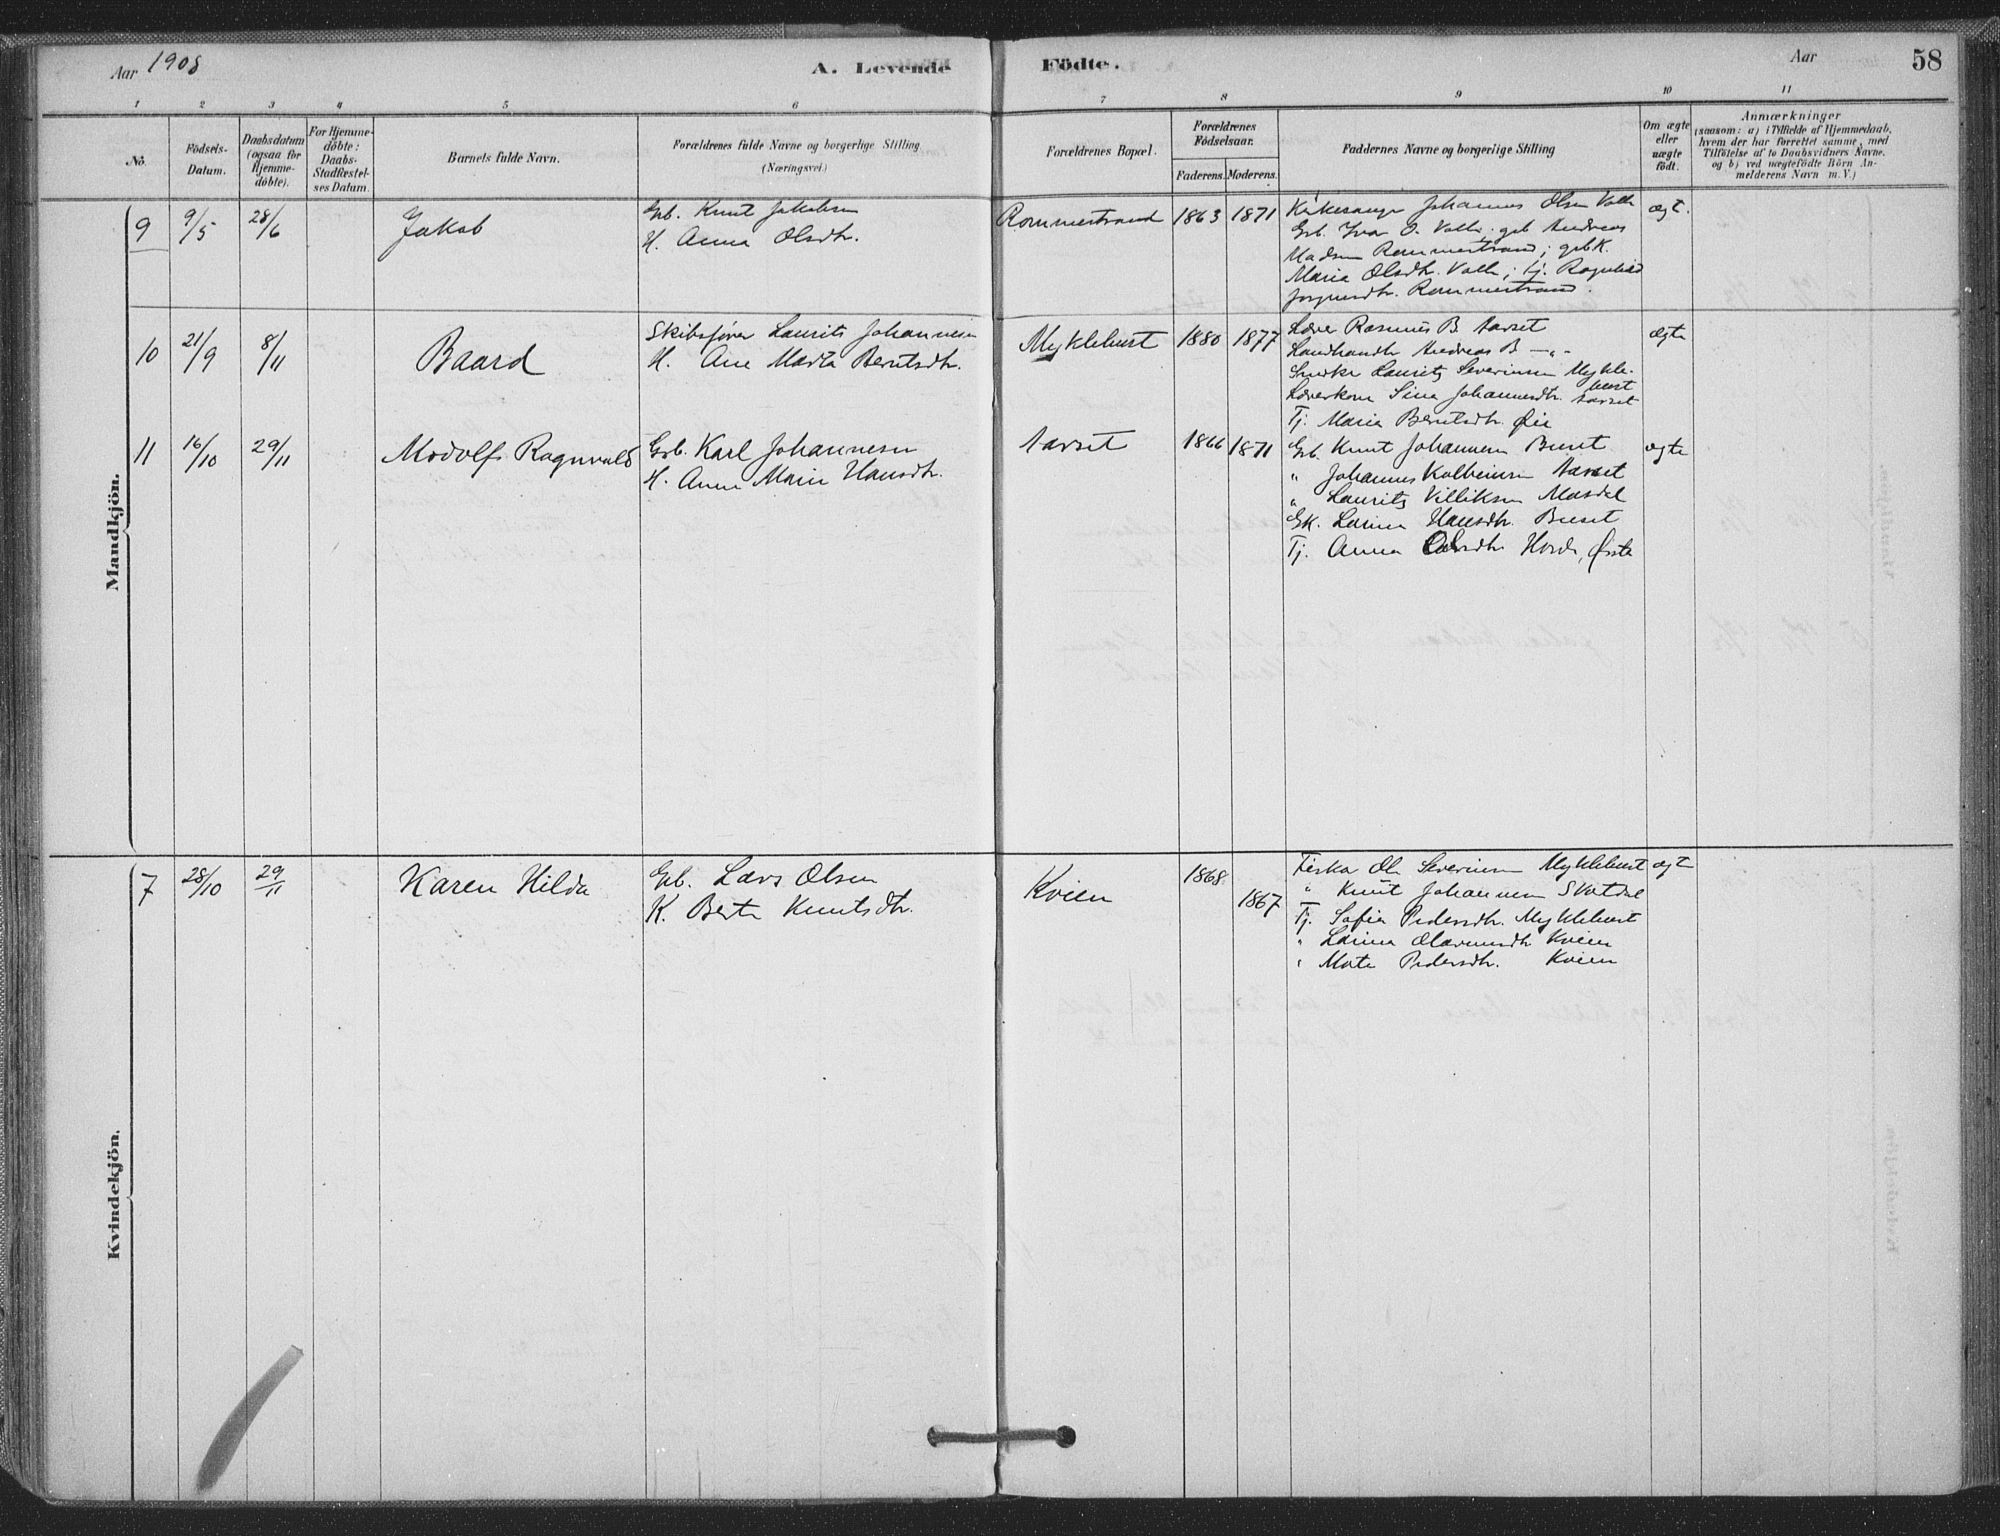 Aar 1908
A. Levende Födte.
Aar
58
1 2 3 4 5 6 7 8 9 10 11
No.
Födsels-
Datum.
Daabsdatum
(ogsaa for
Hjemme-
döbte).
For Hjemme-
döbte:
Daabs-
Stadfæstel-
ses Datum.
Barnets fulde Navn.
Forældrenes fulde Navne og borgerlige Stilling
(Næringsvei.)
Forældrenes Bopæl.
Forældrenes
Födselsaar.
Faderens. Moderens.
Faddernes Navne og borgerlige Stilling
Om ægte
eller
uægte
födt.
Anmærkninger
(saasom: a) i Tilfælde af Hjemmedaab,
hvem der har forrettet samme, med
Tilföielse af to Daabsvidners Navne,
og b) ved uægtefödte Börn An-
melderens Navn m. V.)
Mandkjön.
9 9/5 28/6 Jakob
Gb. Knut Jakobsen
H. Anna Olsdtr.
Rommestrand 1863 1871
Kirkesanger Johannes Olsen Valle
Gb. Ivar O. Valle; gb Andreas
Madsen Rommestrand; gbk.
Maria Olsdtr. Valle; tj. Ragnhild
Jørgensdtr. Rommestrand.
ægt.
10 21/9 8/11 Baard
Skibsfører Laurits Johannesen
H. Ane Marta Berntsdtr.
Myklebust 1880 1877
Lærer Rasmus B. Aarset
Landhandler Andreas B — „ -
Laurits Severinsen Mykle-
bust
Lærerkone Sina Johannesdtr. Aarset
Tj. Maria Berntsdtr. Øie
ægte
11 16/10 29/11 Modolf Ragnvald
Gb. Karl Johannesen
H. Anne Marie Hansdtr.
Aarset 1866 1871
Gb. Knut Johannesen Buset
„ Johannes Kolbeinsen Aarset
„ Laurits Villiksen Masdal
Gk. Larine Hansdtr. Buset
Tj. Anna Olsdtr. Hovde, Ørsta
ægte
Kvindekjön.
7 28/10 29/11 Karen Hilda
Gb. Lars Olsen
K. Berte Knutsdtr.
Kvien 1868. 1867
Fisker Ole Severinsen Myklebust
„ Knut Johannesen Skotdal
Tj. Sofia Pedersdtr. Myklebust
„ Larina Kvien
„ Marte Pedersdtr. Kvien
ægte